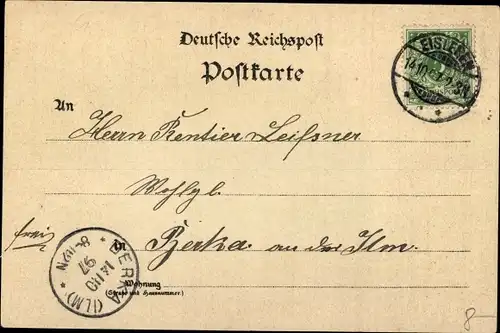 Deutsche Reichspost
Postkarte
EISLEBEN
14.10.97.
An
Herrn Rentier Leißner
Wohlgb.
frei
in Berka an der Ilm.
BERKA (ILM)
14 10 97
Wohnung
(Straße und Hausnummer)
8-